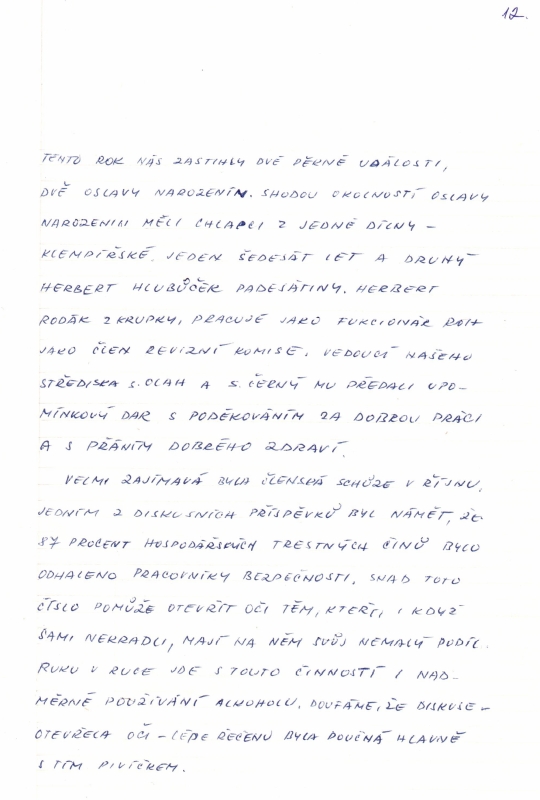 12.
TENTO ROK NÁS ZASTIHLY DVĚ PĚKNÉ UDÁLOSTI,
DVĚ OSLAVY NAROZENIN. SHODOU OKOLNOSTÍ OSLAVY
NAROZENIN MĚLI CHLAPCI Z JEDNÉ DÍLNY –
KLEMPÍŘSKÉ. JEDEN ŠEDESÁT LET A DRUHÝ
HERBERT HLUBŮČEK PADESÁTINY. HERBERT
RODÁK Z KRUPKY, PRACUJE JAKO FUNKCIONÁŘ ROH
JAKO ČLEN REVIZNÍ KOMISE. VEDOUCÍ NAŠEHO
STŘEDISKA S. OLAH A S. ČERNÝ MU PŘEDALI UPO-
MÍNKOVÝ DAR S PODĚKOVÁNÍM ZA DOBROU PRÁCI
A S PŘÁNÍM DOBRÉHO ZDRAVÍ.
VELMI ZAJÍMAVÁ BYLA ČLENSKÁ SCHŮZE V ŘÍJNU.
JEDNÍM Z DISKUSNÍCH PŘÍSPĚVKŮ BYL NÁMĚT, ŽE
87 PROCENT HOSPODÁŘSKÝCH TRESTNÝCH ČINŮ BYLO
ODHALENO PRACOVNÍKY BEZPEČNOSTI. SNAD TOTO
ČÍSLO POMŮŽE OTEVŘÍT OČI TĚM, KTEŘÍ, I KDYŽ
SAMI NEKRADLI, MAJÍ NA NĚM SVŮJ NEMALÝ PODÍL.
RUKU V RUCE JDE S TOUTO ČINNOSTÍ I NAD-
MĚRNÉ POUŽÍVÁNÍ ALKOHOLU. DOUFÁME, ŽE DISKUSE –
OTEVŘELA OČI – LÉPE ŘEČENO BYLA POUČNÁ HLAVNĚ
S TÍM PIVÍČKEM.